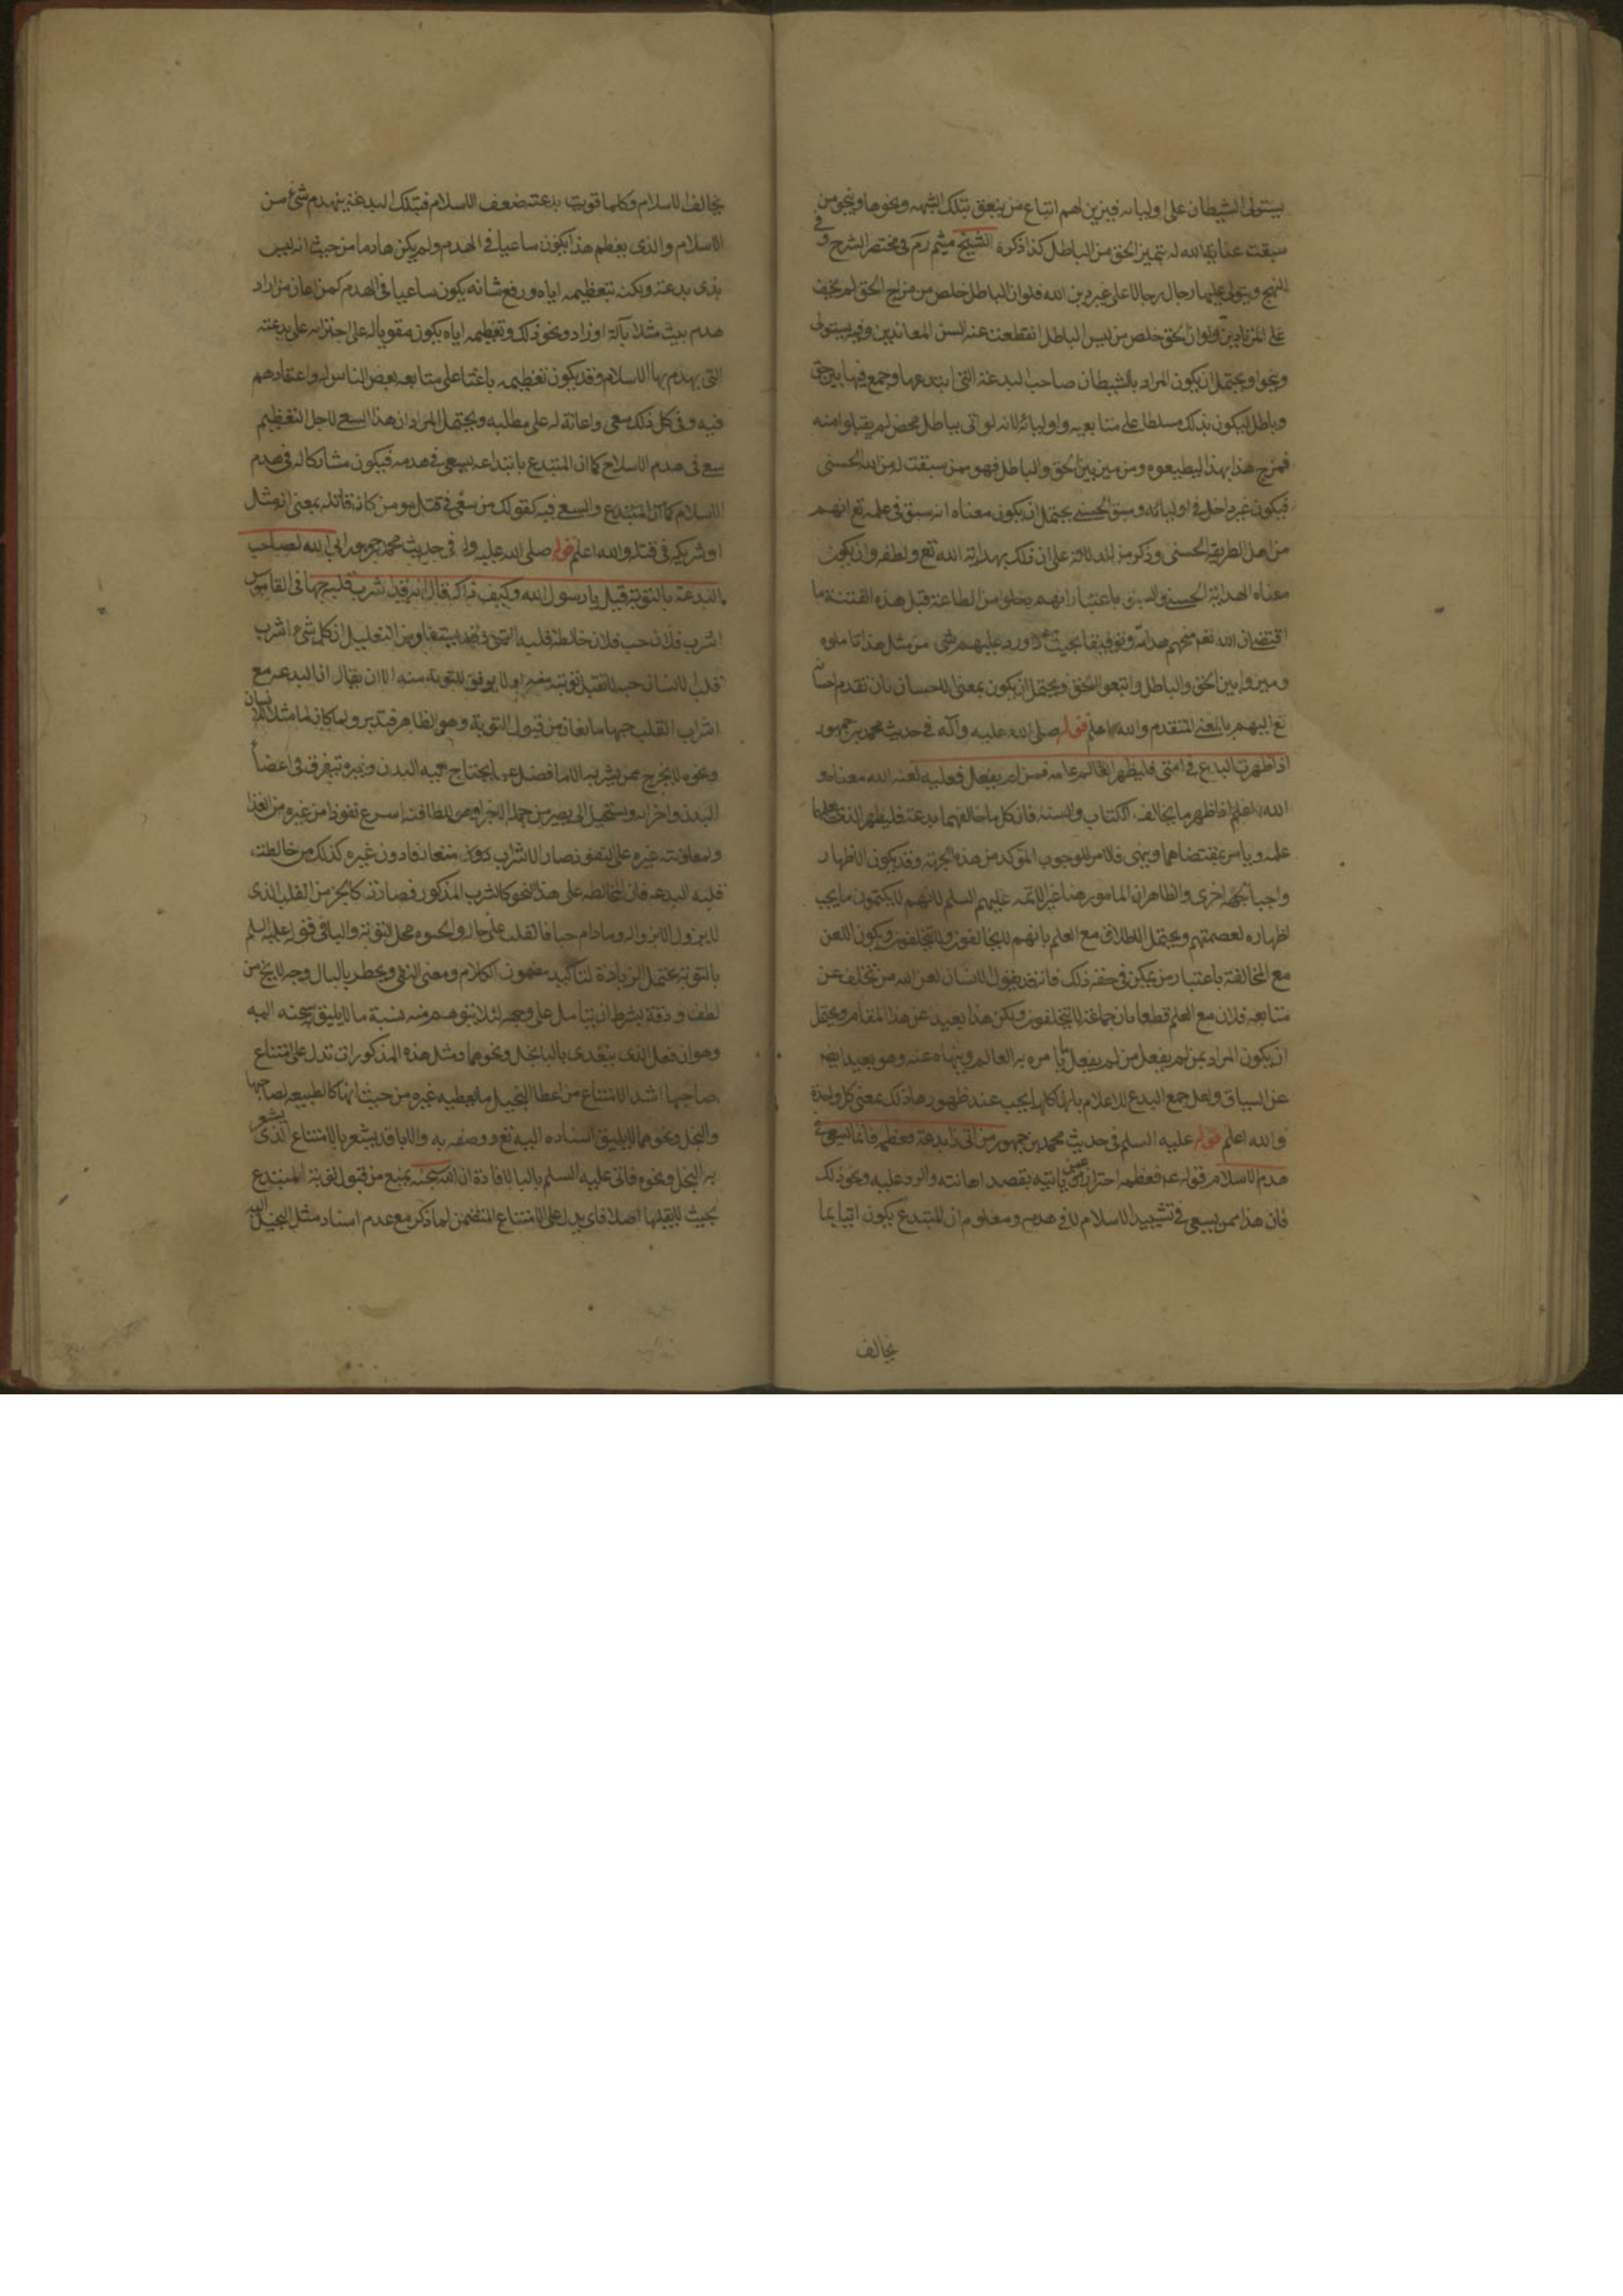 يستولى الشيطان على اوليائه فيزين لهم اتباع من ينعق بتلك الشبهه ونحوها وينجو من
سبقت عناية الله له بتميز الحق من الباطل كذا ذكره الشيخ ميثم ره في مختصر الشرح وفي
النهج ويتولى عليها رجال رجالا على غير دين الله فلو ان الباطل خلص من مزاج الحق لم يخف
على المرتادين ولو ان الحق خلص من لبس الباطل انقطعت عنه السن المعاندين وفيه يستولى
وينجو ويحتمل ان يكون المراد بالشيطان صاحب البدعة التى ابتدعها وجمع فيها بين حق
وباطل ليكون بذلك مسلطا على متابعيه واوليائه لانه لو اتى بباطل محض لم يقبلوا منه
فمزج هذا بهذا ليطيعوه ومن ميز بين الحق والباطل فهو ممن سبقت له من الله الحسنى
فيكون غير داخل في اوليائه وسبق الحسنى يحتمل ان يكون معناه انه سبق في علمه تع انهم
من اهل الطريقه الحسنى وذكر من الله للدلالة على ان ذلك بهداية الله تع ولطفه وان يكون
معناه الهداية الحسنى والسبق باعتبار انهم فعلوا من الطاعة قبل هذه الفتنة ما
اقتضى ان الله تعم منحهم هداية وتوفيقا بحيث اذا ورد عليهم شى من مثل هذا تاملوه
وميزوا بين الحق والباطل واتبعوا الحق ويحتمل ان يكون بمعنى الاحسان بان تقدم احسانه
تع اليهم بالمعنى المتقدم والله اعلم قوله صلى الله عليه وآله في حديث محمد بن جمهور
اذا ظهرت البدع في امتى فليظهر العالم علمه فمن لم يفعل فعليه لعنة الله معناه و
الله اعلم اذا ظهر ما يخالف الكتاب والسنة فان كل ما خالفهما بدعة فليظهر الذى علمها
علمه ويامر بمقتضاهما وينهى فالامر للوجوب المؤكد من هذه الجهة وقد يكون الاظهار
واجبا بجهة اخرى والظاهر ان المامور هنا غير الائمه عليهم السلم لانهم لا يكتمون ما يجب
اظهاره لعصمتهم ويحتمل الاطلاق مع العلم بانهم لا يخالفون ولا يتخلفون ويكون اللعن
مع المخالفة باعتبار من يمكن في حقه ذلك فانه قد يقول الانسان لعن الله من تخلف عن
متابعه فلان مع العلم قطعا بان جماعة لا يتخلفون ولكن هذا بعيد عن هذا المقام ويحتمل
ان يكون المراد بمن لم يفعل من لم يفعل ما يامره به العالم وينهاه عنه وهو بعيد ايضا
عن السياق ولعل جمع البدع للاعلام بانها كلها يجب عند ظهورها ذلك بمعنى كل واحدة
والله اعلم قوله عليه السلم في حديث محمد بن جمهور من اتى ذا بدعة فعظمه فانما يسعى في
هدم الاسلام قوله ع فعظمه احتراز عمن ياتيه بقصد اهانته والرد عليه ونحو ذلك
فان هذا ممن يسعى في تشييد الاسلام لا في هدمه ومعلوم ان المبتدع يكون اتيا بما
يخالف
يخالف الاسلام وكلما قويت بدعته ضعف الاسلام فبتلك البدعة ينهدم شئ من
الاسلام والذى يعظم هذا يكون ساعيا في الهدم ولم يكن هادما من حيث انه ليس
بذى بدعة ولكنه بتعظيمه اياه ورفع شانه يكون ساعيا في الهدم كمن اعان من اراد
هدم بيت مثلا بآلة او زاد ونحو ذلك وتعظيمه اياه يكون مقويا له على اجترائه على بدعته
التى يهدم بها الاسلام وقد يكون تعظيمه باعثا على متابعه بعض الناس له واعتقادهم
فيه وفى كل ذلك سعى واعانة له على مطلبه ويحتمل المراد ان هذا السعى لاجل التعظيم
سعى في هدم الاسلام كما ان المبتدع بابتداعه يسعى في هدمه فيكون مشاركا له في هدم
الاسلام كما ان المبتدع والسعى فيه كقولك من سعى في قتل مومن كان قاتله بمعنى انه مثله
او شريكه في قتله والله اعلم قوله صلى الله عليه وآله في حديث محمد بن جمهور ابى الله لصاحب
البدعة بالتوبة قيل يا رسول الله وكيف ذاك قال انه قد اشرب قلبه حبها في القاموس
اشرب فلان حب فلان خالط قلبه انتهى وقد يستفاد من التعليل ان كل شئ اشرب
قلب الانسان حبه لا تقبل توبته منه او لا يوفق للتوبة منه الا ان يقال ان البدعه مع
اشراب القلب حبها مانعان من قبول التوبة وهو الظاهر فتدبر ولما كان الماء مثلا للانسان
ونحوه لا يخرج ممن يشربه الا ما فضل عما يحتاج اليه البدن وغيره تتفرق في اعضاء
البدن واجزائه ويستحيل الى ان يصير من جملة الاجزاء وهو للطافته اسرع نفوذا من غيره من الغذا
ولمعاونته غيره على النفوذ صار الاشراب متعارفا دون غيره كذلك من خالطت
قلبه البدعه فان المخالطه على هذا النحو كالشرب المذكور فصارت كالجزء من القلب الذى
لا يزول الا بزواله وما دام حبا فالقلب على حاله والحب محل التوبة والباء في قوله عليه السلم
بالتوبة يحتمل الزيادة لتاكيد مضمون الكلام ومعنى النفى ويخطر بالبال وجه لا يخ من
لطف ودقة بشرط ان يتامل على وجهه لئلا يتوهم منه نسبة ما لا يليق به سبحانه اليه
وهو ان فعل الذى يتعدى بالباء كبخل ونحوها ومثل هذه المذكورات تدل على امتناع
صاحبها اشد الامتناع من اعطاء البخيل ما يعطيه غيره من حيث انها كالطبيعه لصاحبها
والبخل ونحوهما لا يليق اسناده اليه تع ووصفه به والاباء قد يشعر بالامتناع الذى يشعر
به البخل ونحوه فاتى عليه السلم بالباء لافادة ان الله سبحنه يمنع من قبول توبة المبتدع
بحيث لا يقبلها اصلا فابى يدل على الامتناع المتضمن لما ذكر مع عدم اسناد مثل البخل اليه